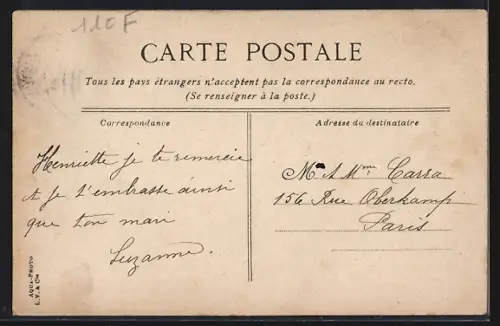 110F
CARTE POSTALE
Tous les pays étrangers n'acceptent pas la correspondance au recto.
(Se renseigner à la poste.)
Correspondance
Adresse du destinataire
Henriette je te remercie
et je t'embrasse ainsi
que ton mari
Suzanne.
Mr & Mme Carra
156 Rue Oberkampf
Paris
AQUA-PHOTO
L.V. & Cie